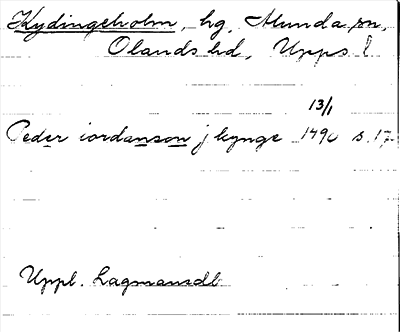 Kydingeholm, hg, Alunda sn,
Olands hd, Upps l
13/1
Peder iordanson j kynge 1490 s. 17
Uppl. Lagmansdb